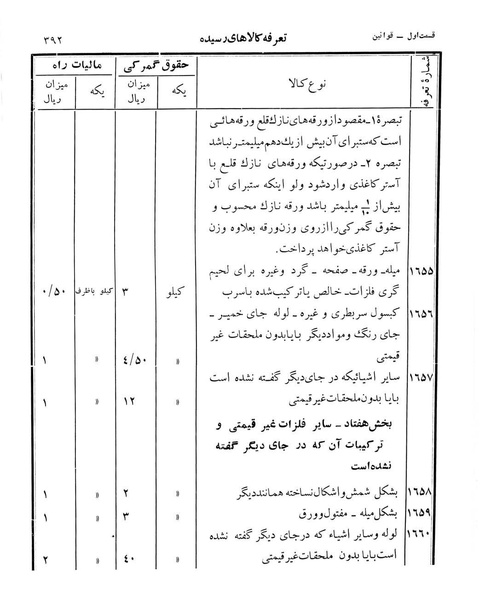 قسمت اول – قوانین
تعرفه کالاهای رسیده
۳۹۲
شمارهٔ تعرفه
نوع کالا
حقوق گمرکی
مالیات راه
یکه
میزان ریال
یکه
میزان ریال
تبصرهٔ ۱ـ مقصود از ورقه‌های نازك قلع ورقه‌هائی
است که ستبرای آن بیش از یك دهم میلیمتر نباشد
تبصره ۲ـ درصورتیکه ورقه‌های نازك قلع با
آستر کاغذی وارد شود ولو اینکه ستبرای آن
بیش از ۱/۱۰ میلیمتر باشد ورقه نازك محسوب و
حقوق گمرکی را ازروی وزن ورقه بعلاوه وزن
آستر کاغذی خواهد پرداخت.
۱۶۵۵ میله ـ ورقه ـ صفحه ـ گرد وغیره برای لحیم
گری فلزات ـ خالص یا ترکیب شده با سرب کیلو ۳ کیلو باظرف ۰/۵۰
۱۶۵۶ کپسول سربطری و غیره ـ لوله جای خمیر ـ
جای رنگ ومواد دیگر با یا بدون ملحقات غیر
قیمتی » ۴/۵۰ » ۱
۱۶۵۷ سایر اشیائیکه در جای دیگر گفته نشده است
با یا بدون ملحقات غیر قیمتی » ۱۲ » ۱
بخش هفتاد ـ سایر فلزات غیر قیمتی و
ترکیبات آن که در جای دیگر گفته
نشده است
۱۶۵۸ بشکل شمش و اشکال نساخته همانند دیگر » ۲ » ۱
۱۶۵۹ بشکل میله ـ مفتول وورق » ۳ » ۱
۱۶۶۰ لوله وسایر اشیاء که درجای دیگر گفته نشده
است با یا بدون ملحقات غیر قیمتی » ۴۰ » ۲